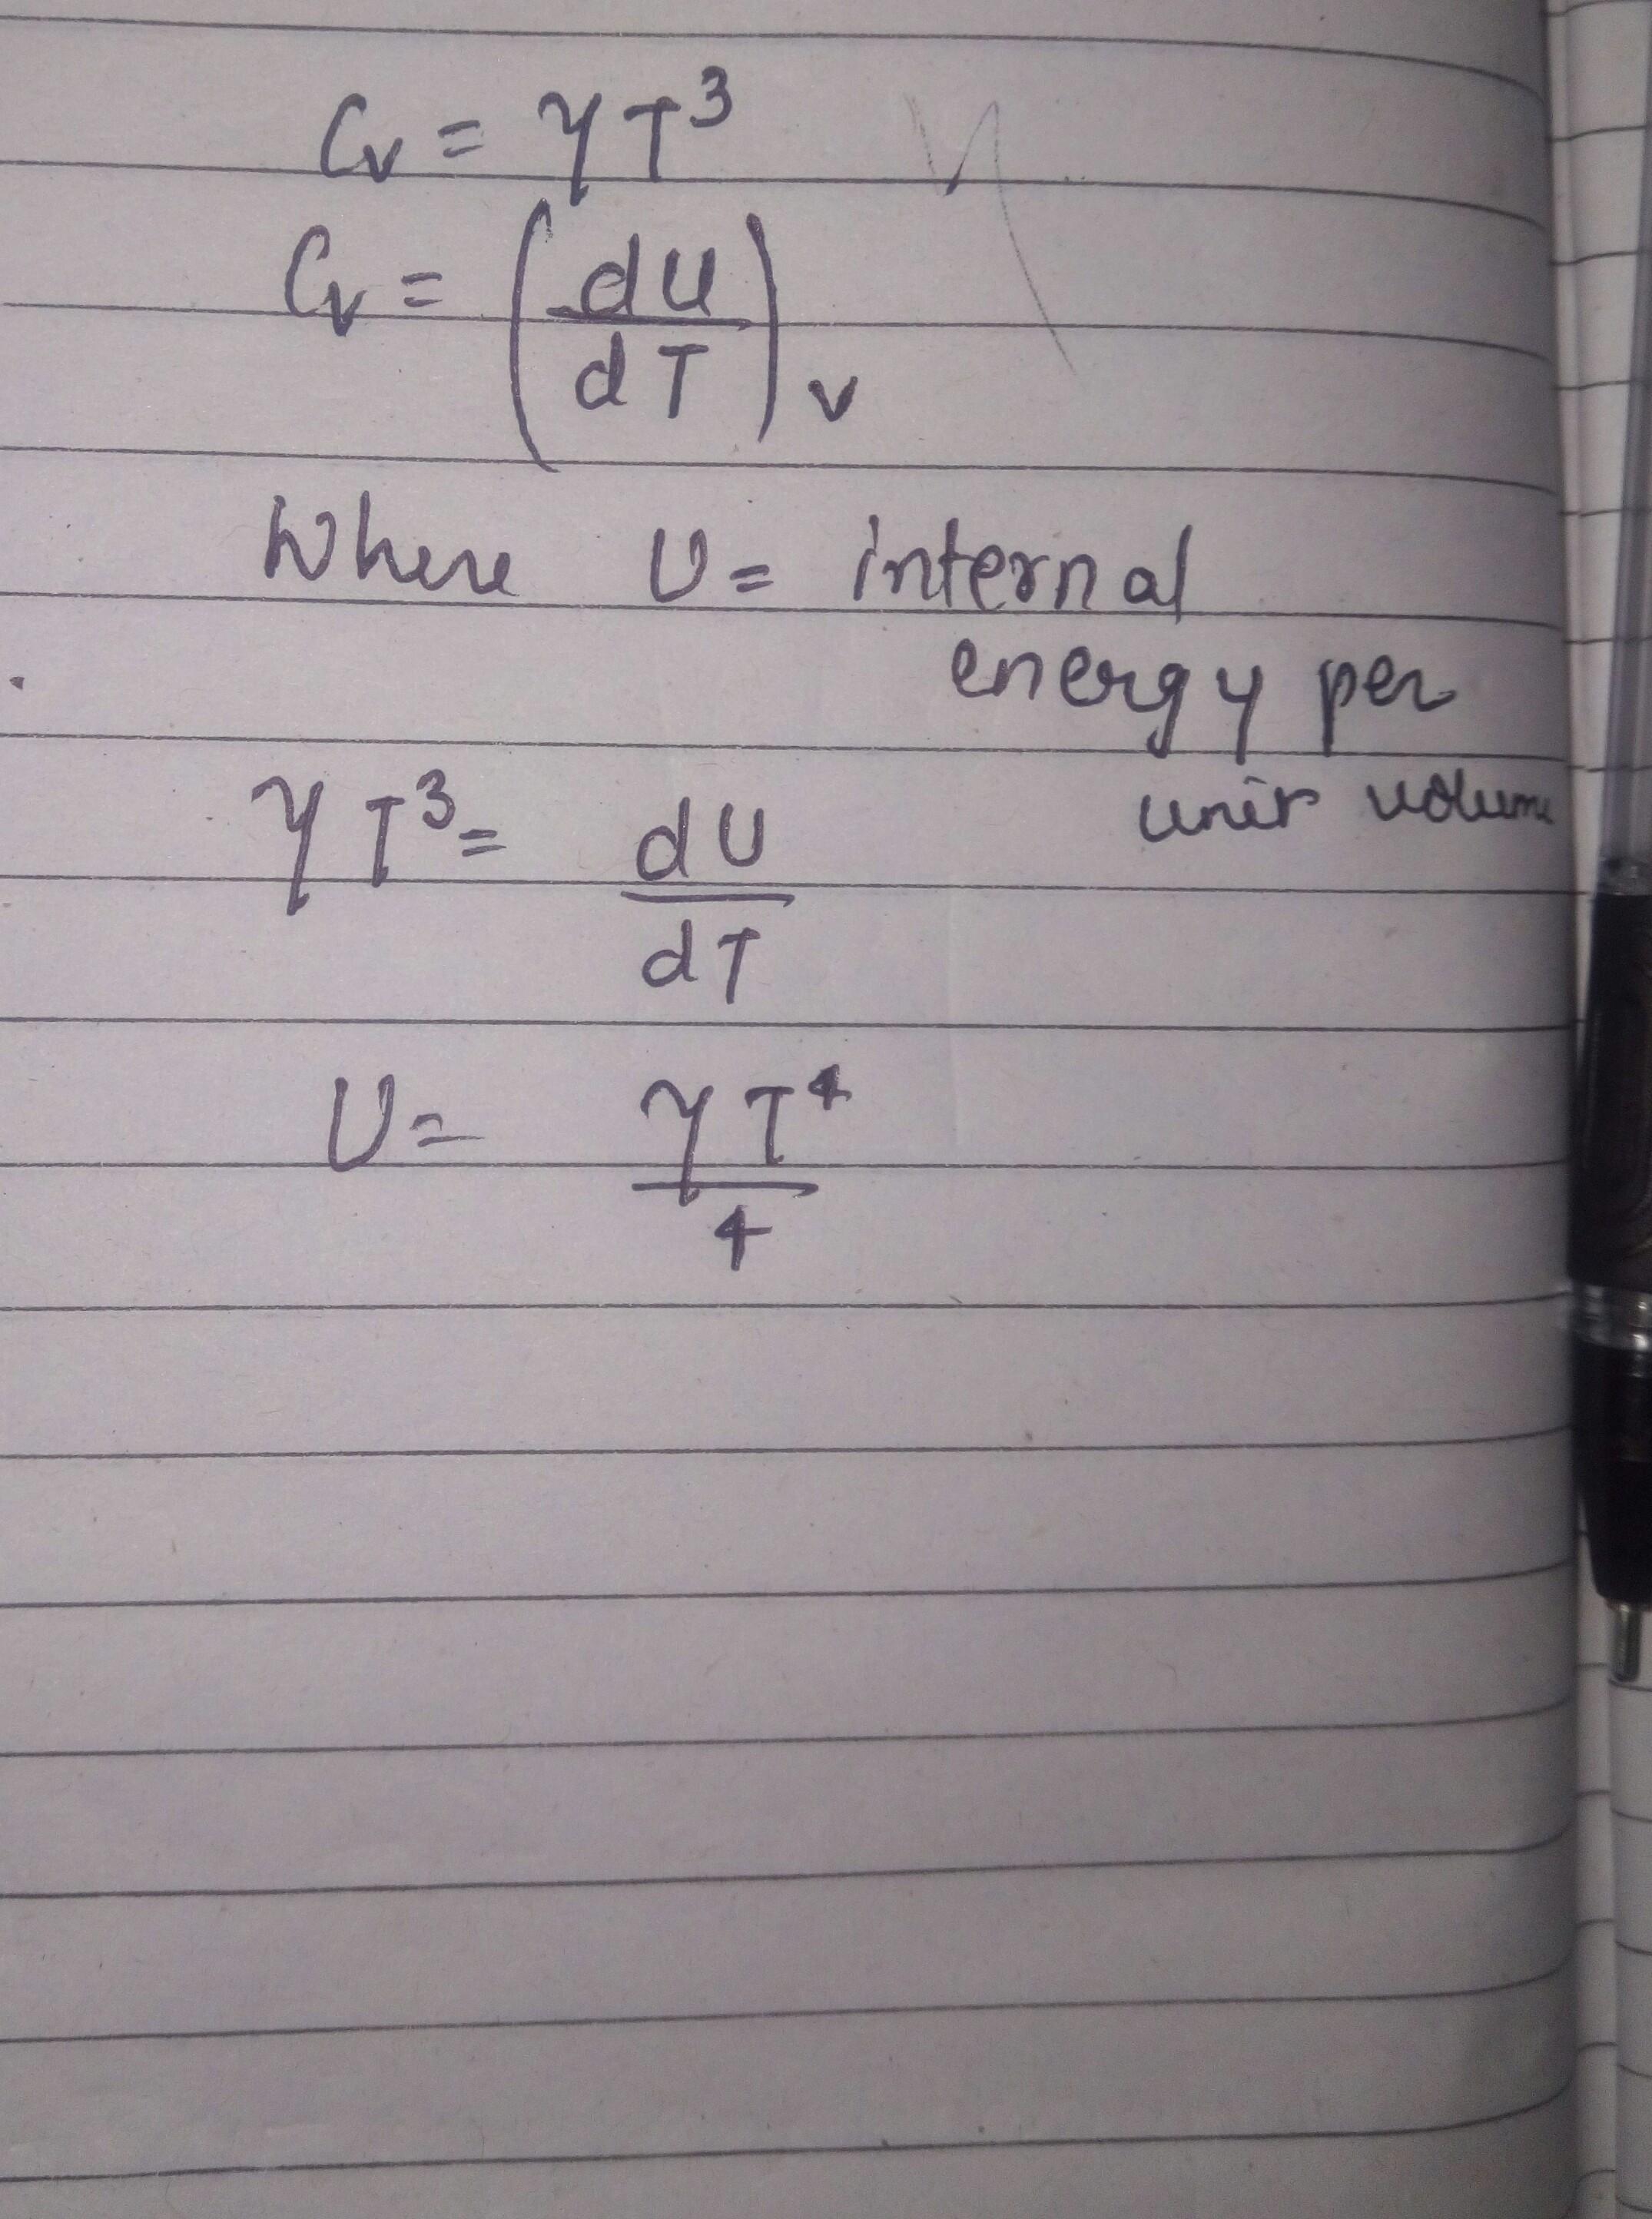 Cv = γ T³
Cv = (dU/dT)v
Where U = internal
energy per
unit volume
γ T³ = dU/dT
U = γ T⁴/4